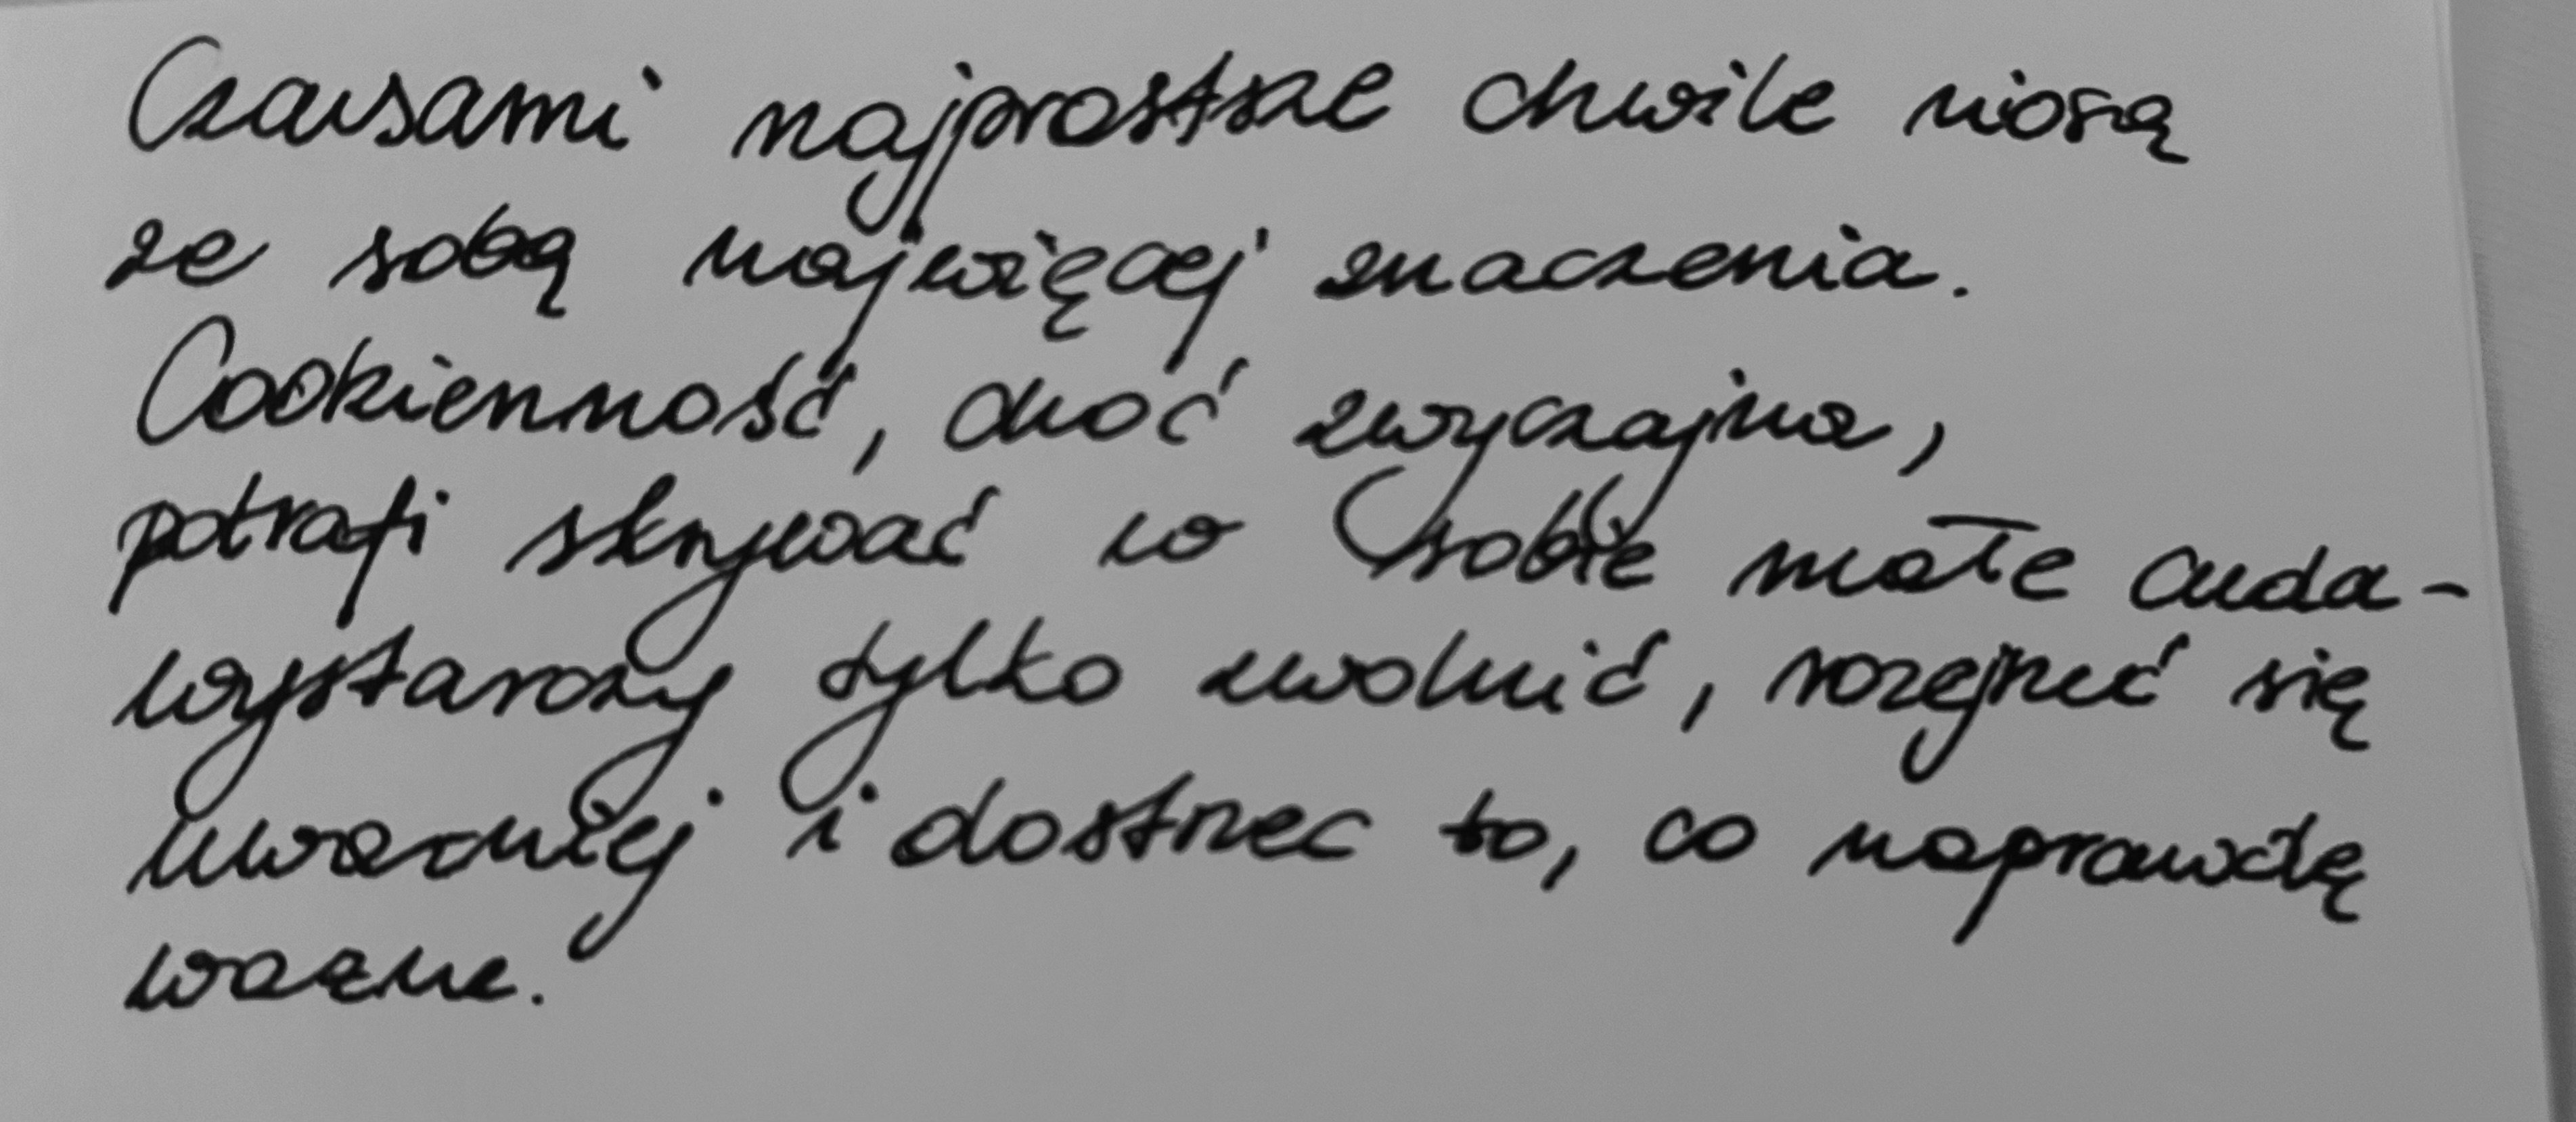 Czasami najprostsze chwile niosą
ze sobą najwięcej znaczenia.
Codzienność, choć zwyczajna,
potrafi skrywać w sobie małe cuda -
wystarczy tylko zwolnić, rozejrzeć się
uważniej i dostrzec to, co naprawdę
ważne.